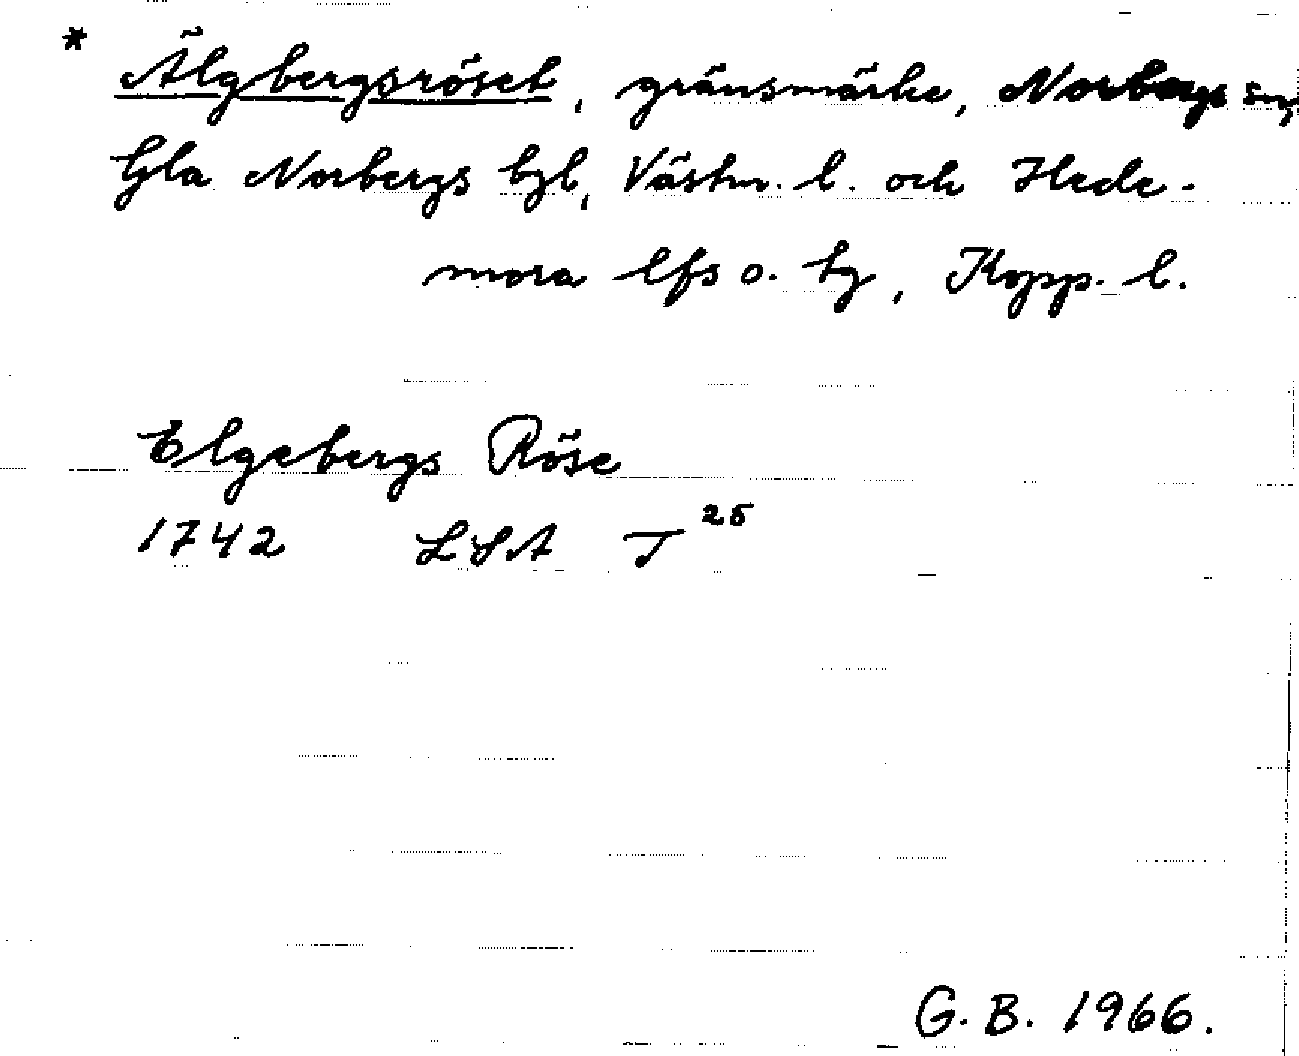 * Älgbergsröset, gränsmärke, Norbergs sn,
Gla Norbergs bgl, Västm. l. och Hede-
mora lfs o. hg, Kopp. l.
Elgebergs Röse
1742 LSA T 25
G. B. 1966.